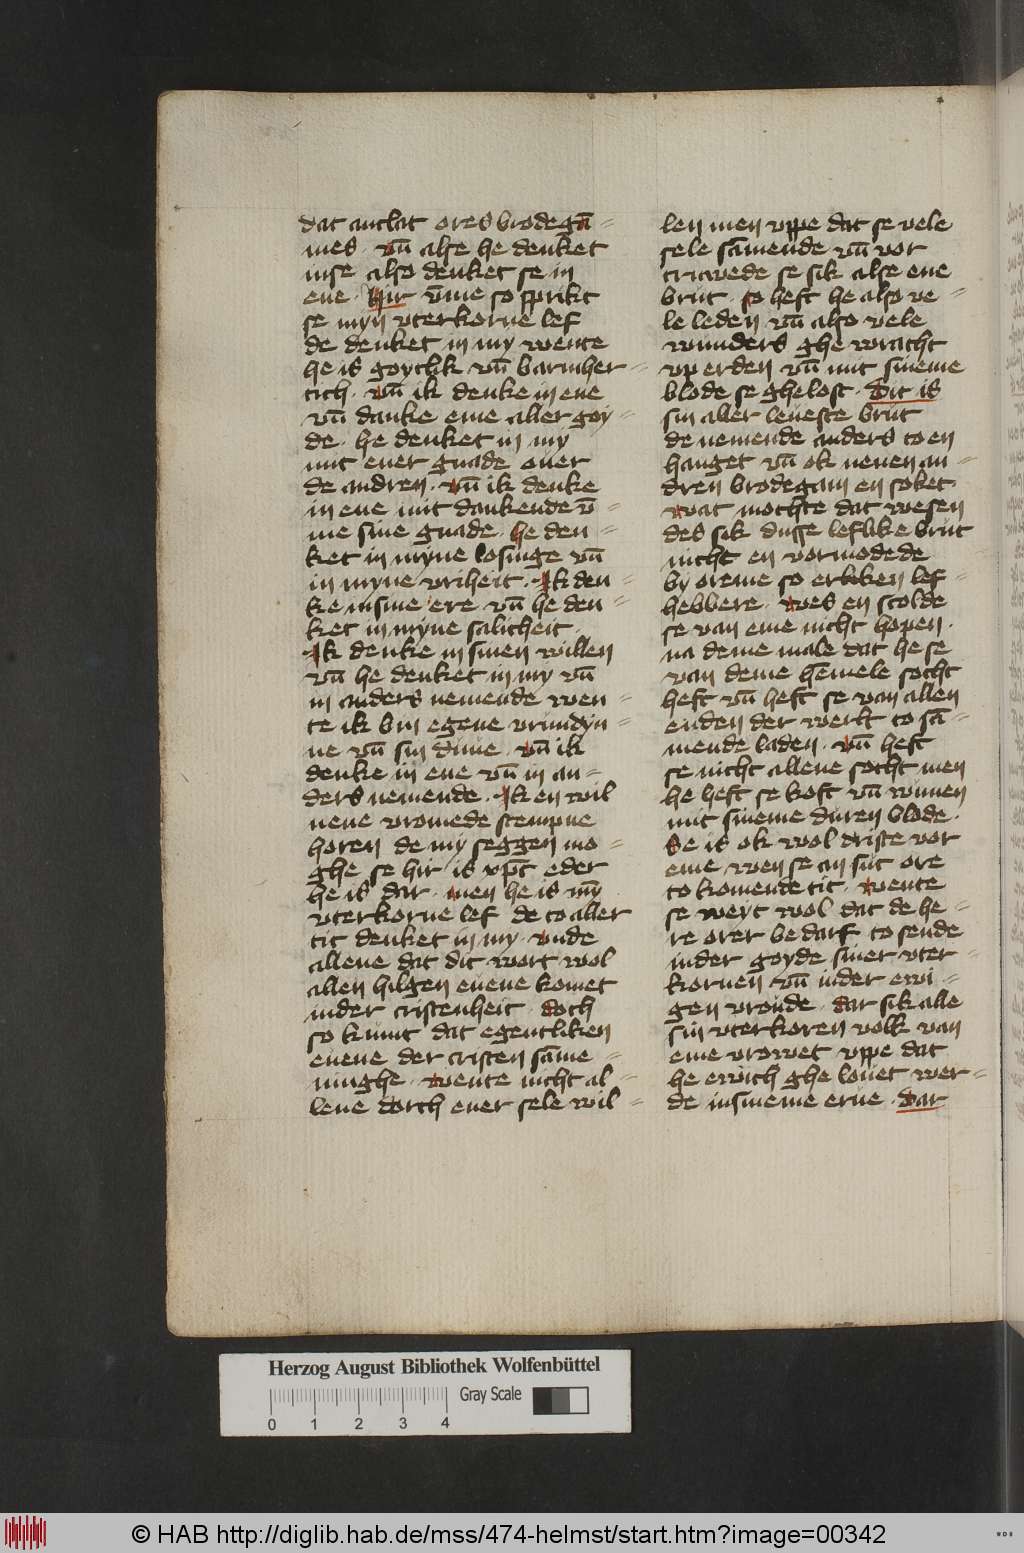 dat antlat ores brodegā=
mes · vn̄ alse he denket
inse also denket se in
ene · Hir v̄me so sprikt
se myn vterkorne lef
de denket in my wente
he is goytlik vn̄ barmher=
tich · vn̄ ik denke in ene
vn̄ danke eme aller goy=
de · he denket in my
mit ener gnade ouer
de andren · vn̄ ik denke
in ene mit dankende v̄=
me sine gnade · he den=
ket in myne losinge vn̄
in myne vriheit · Ik den=
ke insine ere vn̄ he den=
ket in myne salicheit ·
Ik denke in sinen willen
vn̄ he denket in my vn̄
in anders nemende wen=
te ik bin egene vrindyn=
ne vn̄ sin dirne · vn̄ ik
denke in ene vn̄ in an=
ders nemende · Ik en wil
nene vromede stempne
horen de my seggen mo=
ghe se hir is xp̄c eder
he is dar · men he is mȳ
vterkorne lef de to aller
tit denket in my · vnde
allene dat dit wort wol
allen hilgen euene komet
inder cristenheit · doch
so kumt dat egentliken
euene der cristen sāme=
ninghe · wente nicht al=
lene dorch ener sele wil=
len men vppe dat se vele
sele sāmende vn̄ vor
triwede se sik alse ene
brut · so heft he also ve=
le leden vn̄ also vele
wunders ghe wracht
vp erden vn̄ mit sineme
blode se ghelost · Dit is
sin aller leueste brut
de nemende anders to en
hanget vn̄ ok nenen an=
dren brodegam en soket
wat mochte dat wesen
des sik dusse leflike brut
nicht en vormodede
by oreme so erliken lef=
hebbere · wes en scolde
se van eme nicht hopen ·
na deme male dat he se
van deme hēmele socht
heft vn̄ heft se van allen
enden der werlt to sā=
mende laden · vn̄ heft
se nicht allene socht men
he heft se koft vn̄ wnnen
mit sineme duren blode ·
Se is ok wol driste vor
eme wen se an sut ore
to komende tit · wente
se weyt wol dat de he=
re orer bedarf to sende
inder goyde siner vter=
kornen vn̄ inder ewi=
gen vroude · dar sik alle
sin vterkoren volk van
eme vrowet vppe dat
he ewich ghe louet wer=
de insineme erue · Dar
Herzog August Bibliothek Wolfenbüttel
Gray Scale
0 1 2 3 4
© HAB http://diglib.hab.de/mss/474-helmst/start.htm?image=00342
WDB